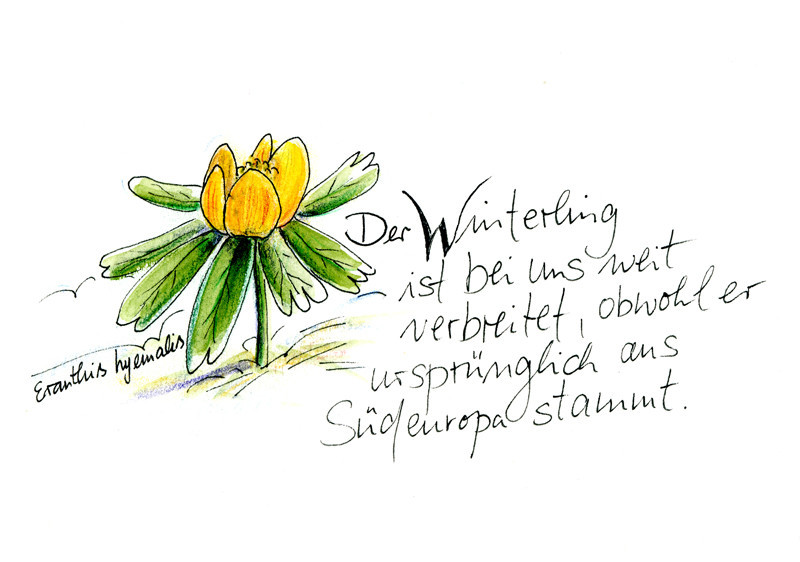 Der Winterling
ist bei uns weit
verbreitet, obwohl er
ursprünglich aus
Südeuropa stammt.
Eranthis hyemalis